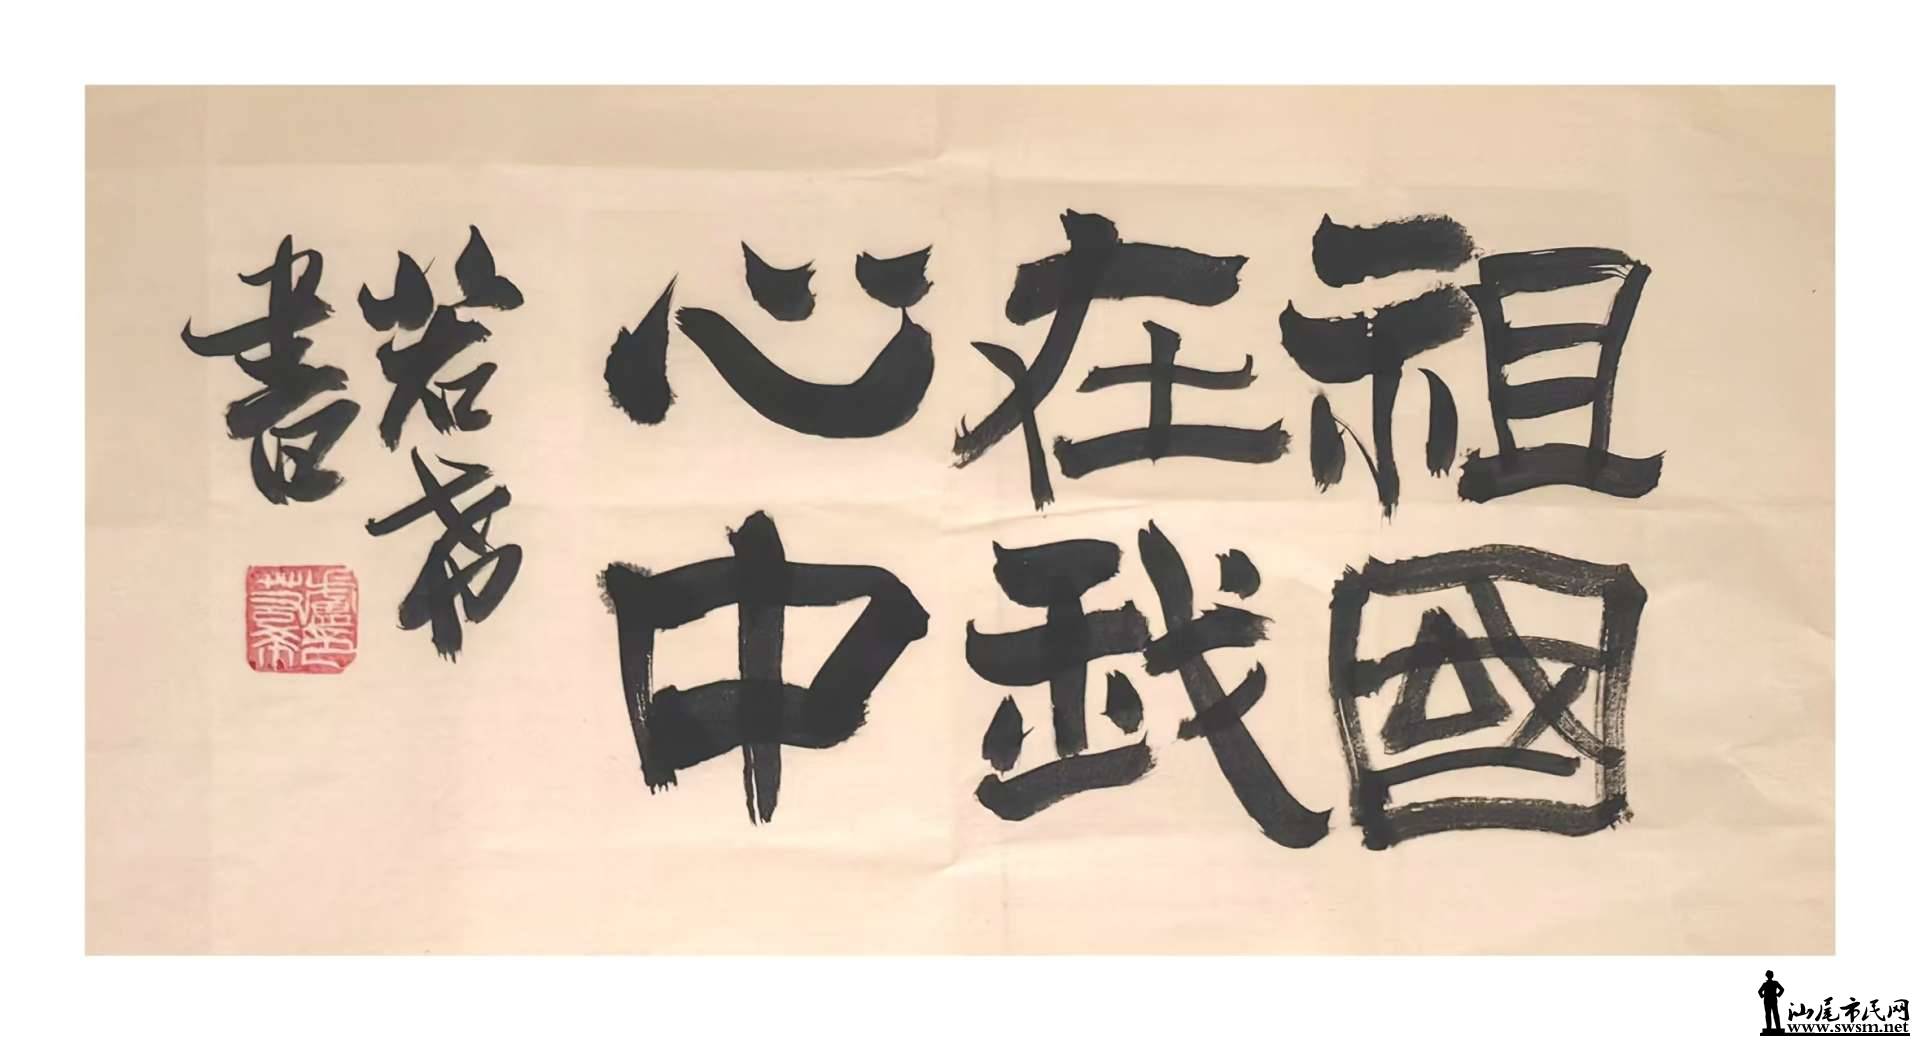 祖國
在我
心中
若希
書
盧印
若希
汕尾市民网
www.swsm.net